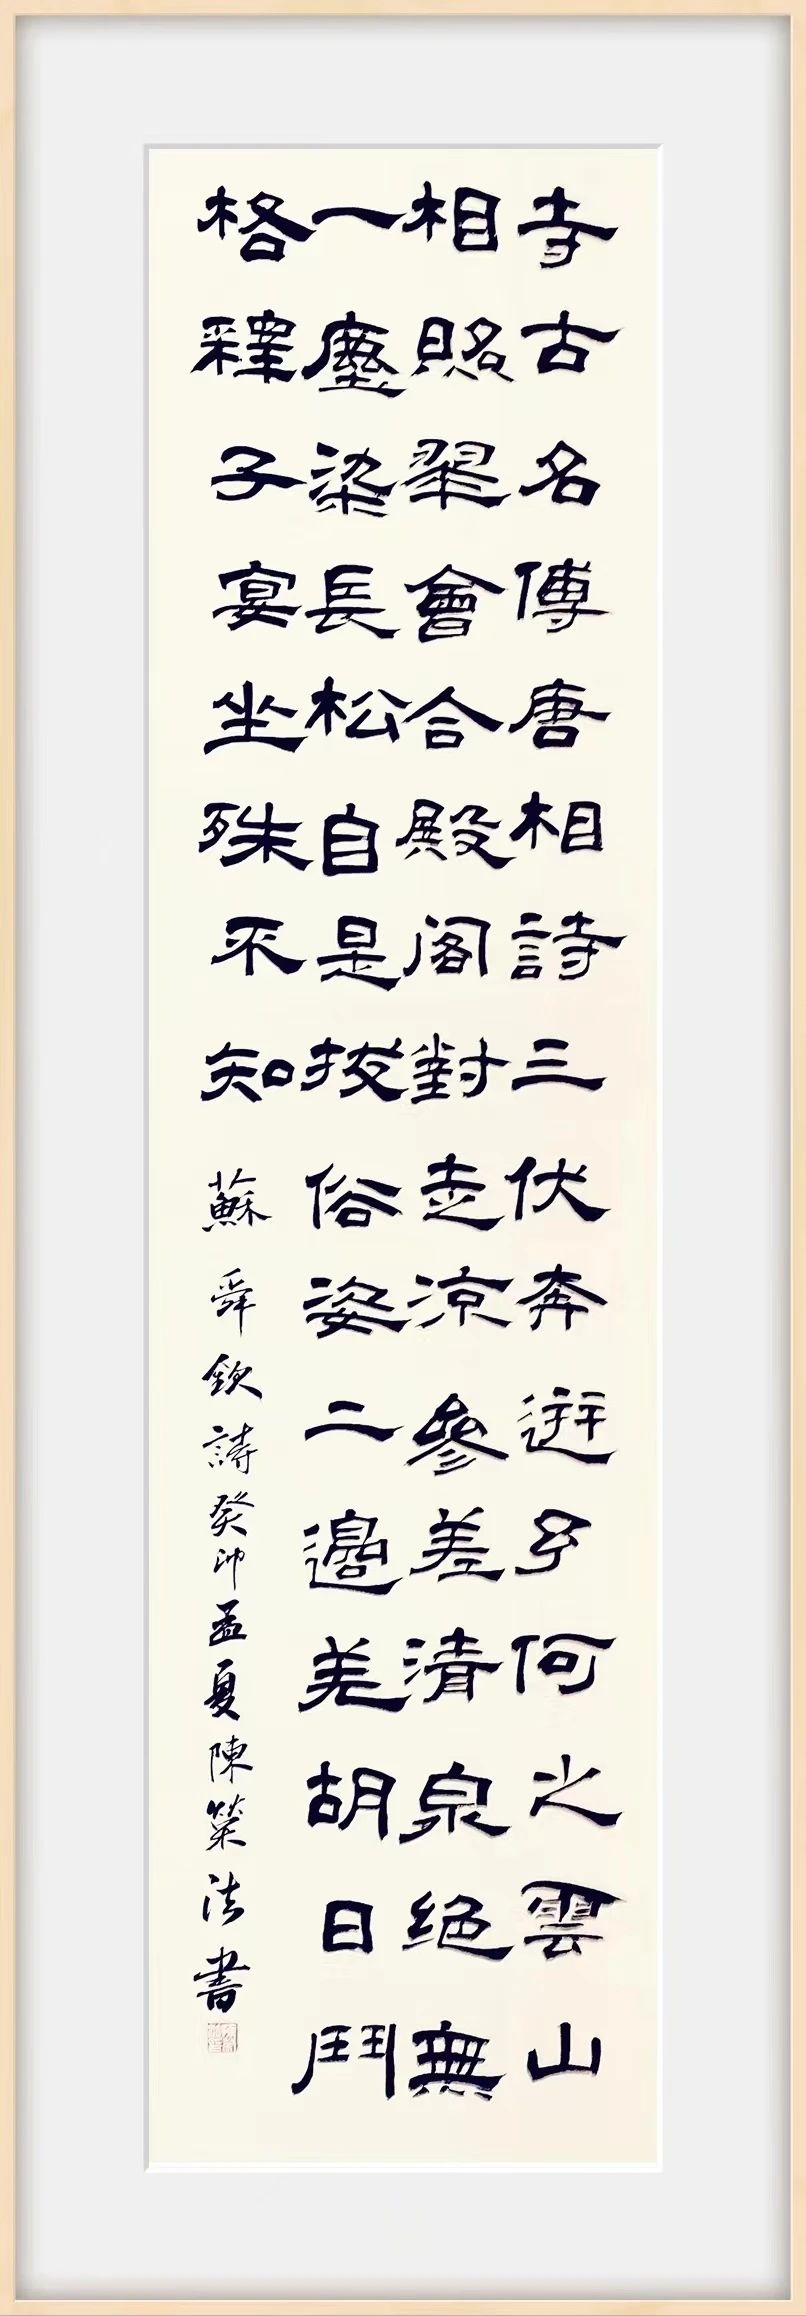 寺古名傳唐相詩三伏奔迸予何之雲山
相照翠會合殿阁對走涼參差清泉絕無
一塵染長松自是拔俗姿二邊羌胡日鬥
格釋子宴坐殊不知 蘇舜欽詩癸卯孟夏陳榮法書